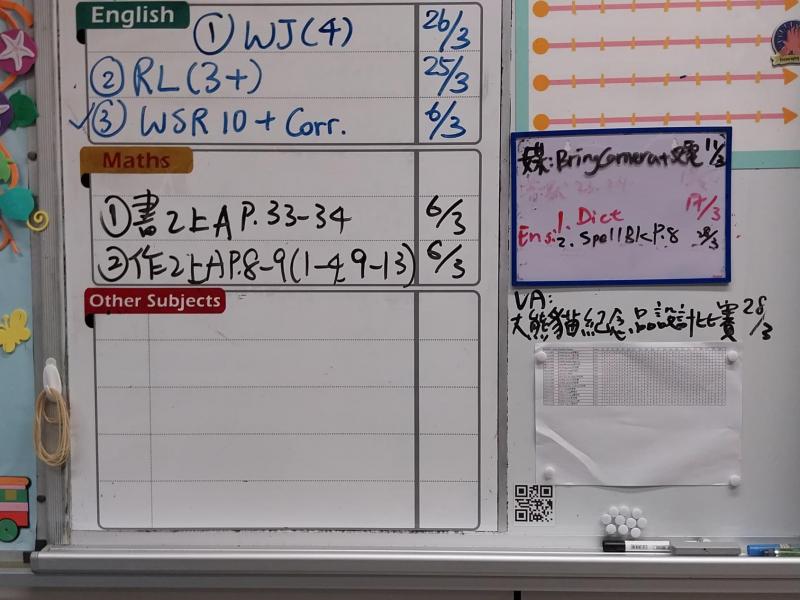 English
① WJ(4) 26/3
② RL(3+) 25/3
✓③ WSR 10 + Corr. 6/3
Maths
①書2上A P.33-34 6/3
②作2上A P.8-9(1-4,9-13) 6/3
Other Subjects
Bring Camera+ 11/3
1. Dict 17/3
Eng: 2. Spell Blk P.8 28/3
VA:
大熊貓紀念品設計比賽 28/3